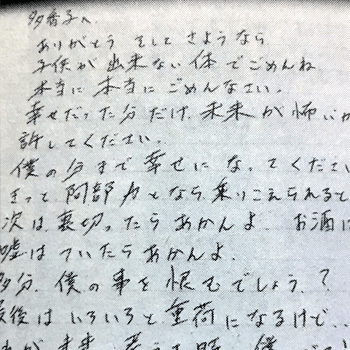 多香子へ
ありがとう そして さようなら
子供が出来ない体でごめんね
本当に 本当に ごめんなさい。
幸せだった分だけ 未来が怖いか
許してください。
僕の分まで幸せになってください
きっと 阿部力となら乗りこえられると
次は、裏切ったらあかんよ お酒に
嘘はついたらあかんよ。
多分、僕の事を恨むでしょう?
最後はいろいろと重荷になるけど..
が 未来 時、僕